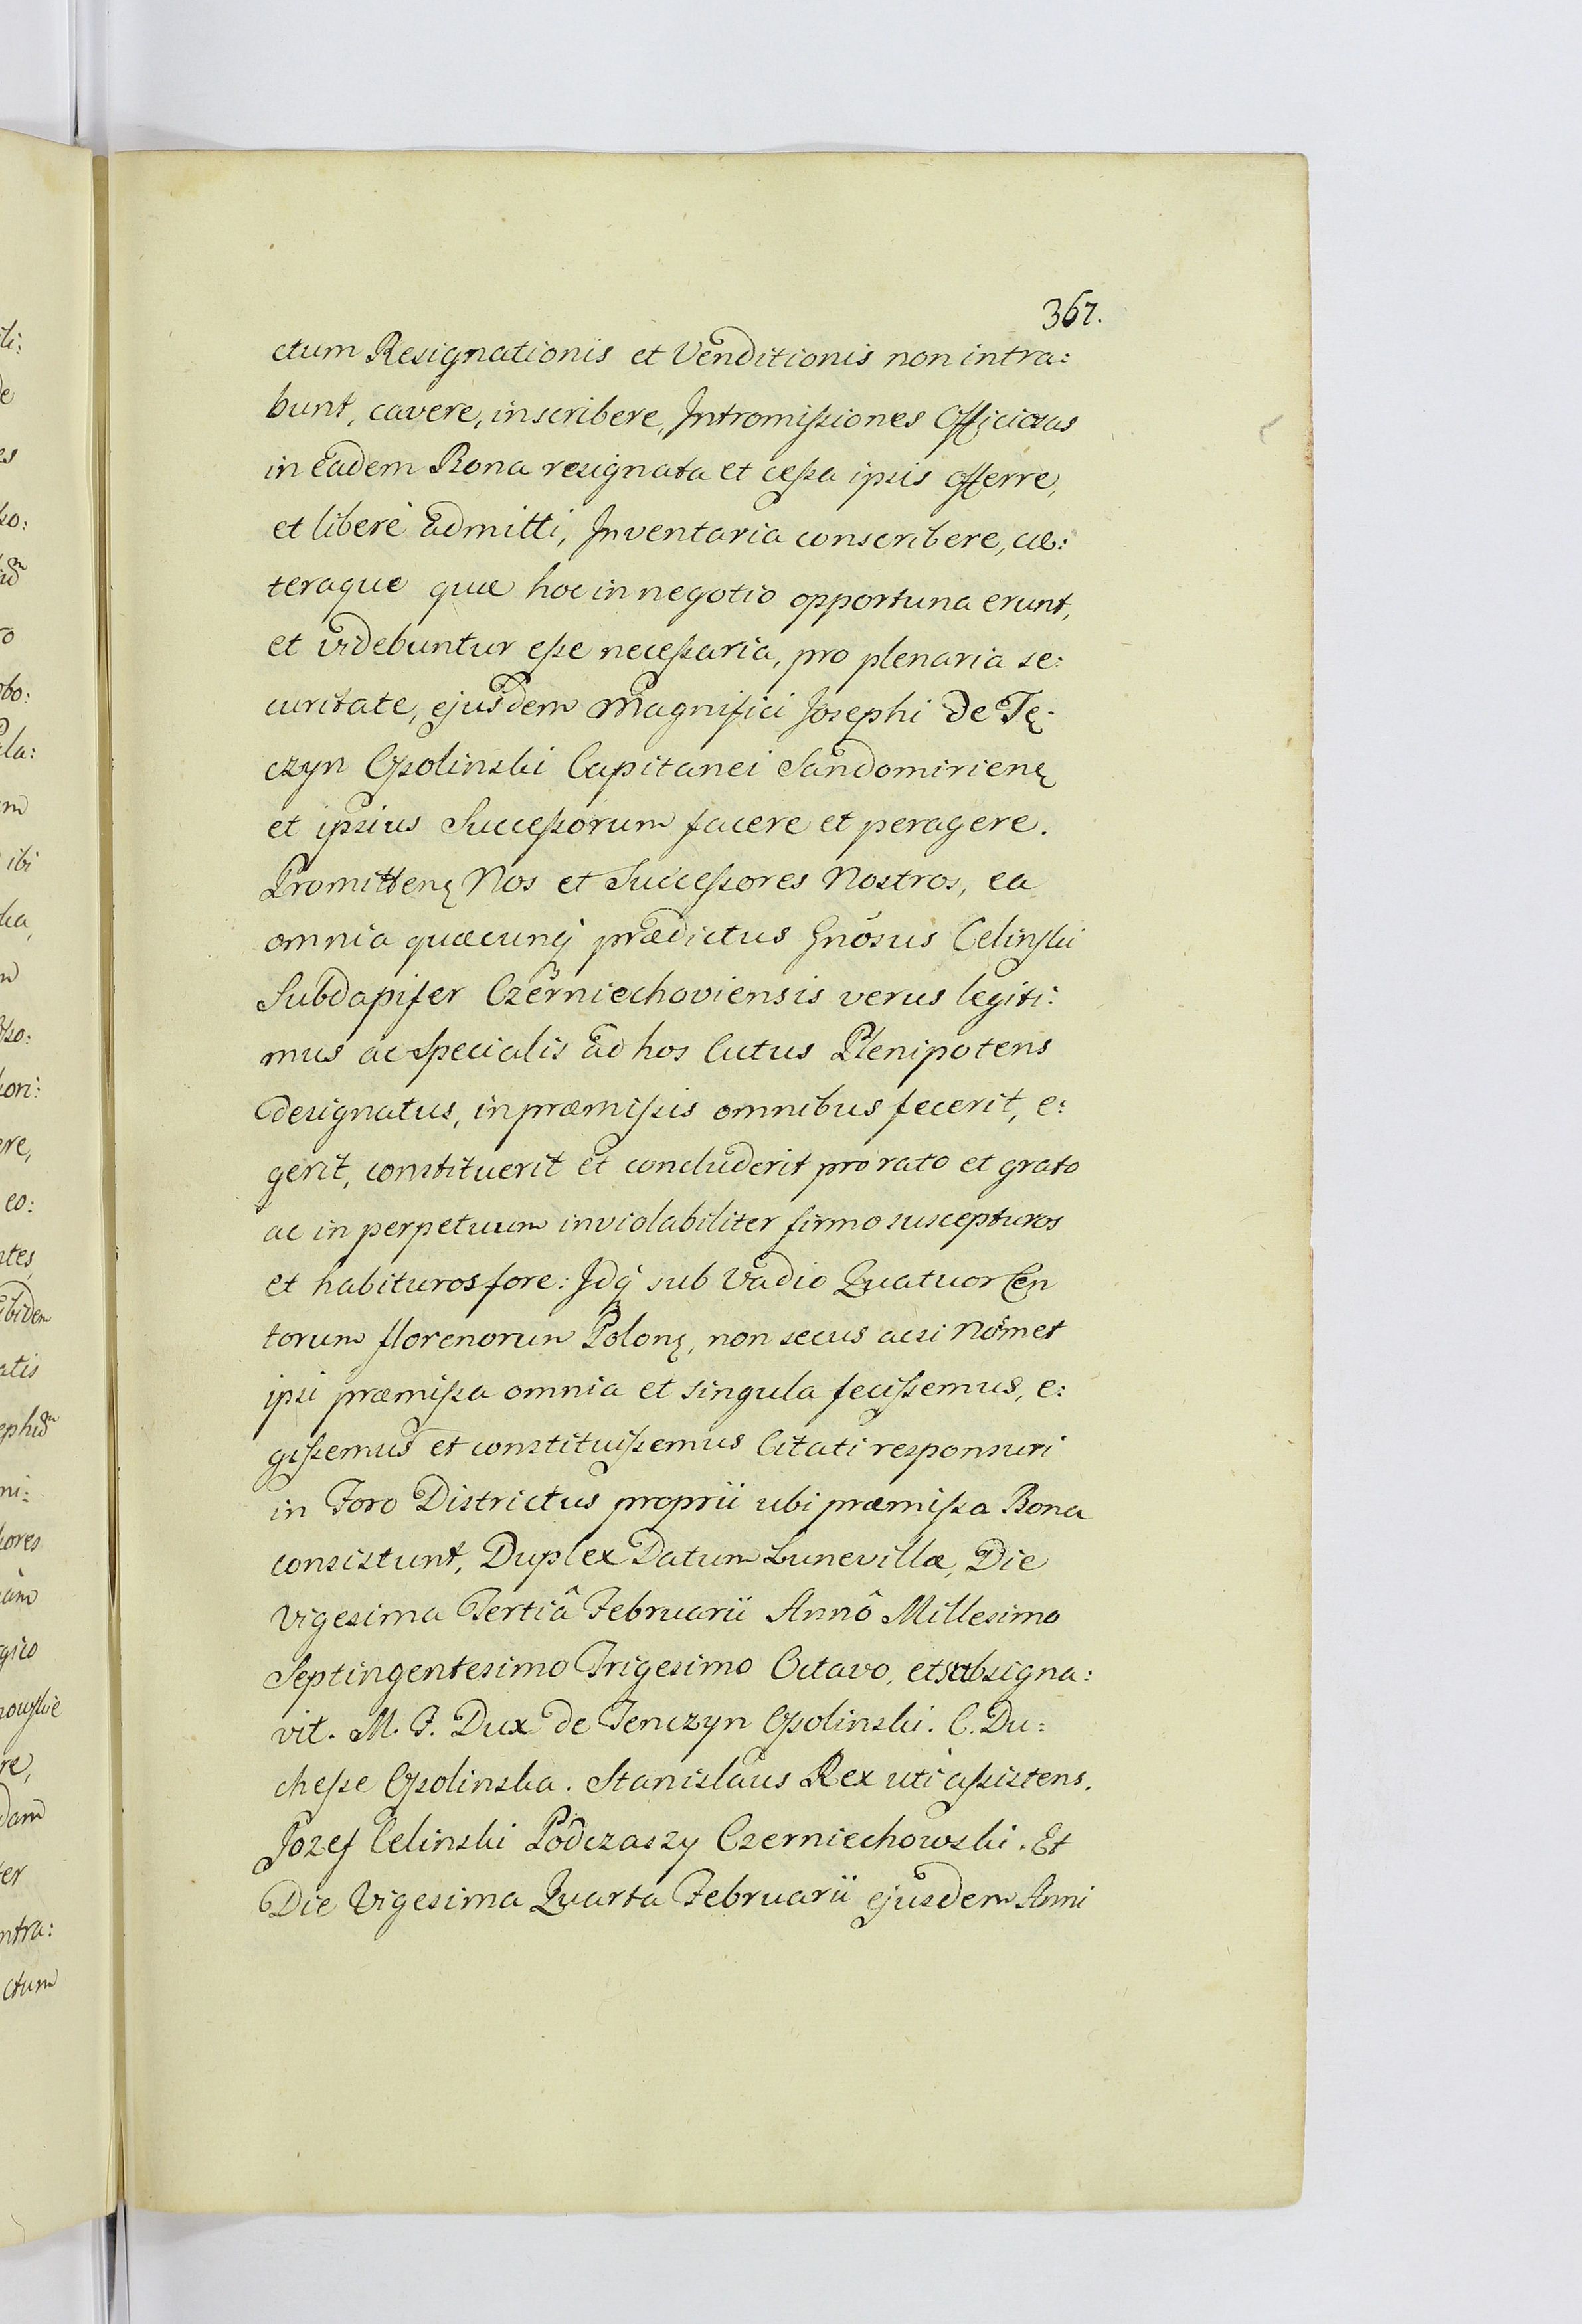 367.
ctum Resignationis et Venditionis non intra:
bunt, cavere, inscribere, Intromiſsiones Officiosas
in Eadem Bona resignata et ceſsa ipsis offerre,
et liberè Admitti, Inventaria conscribere, cæ:
teraque quæ hoc in negotio opportuna erunt,
et videbuntur eſse neceſsaria, pro plenaria se:
curitate, ejusdem Magnifici Josephi de Tę:
czyn Oſsolinski Capitanei Sandomirienę
et ipsius Succeſsorum facere et peragere.
Promittenę Nos et Succeſsores Nostros, ea
omnia quæcunq̨ prædictus Gnõsus Celinſki
Subdapifer Czerniechoviensis verus legiti:
mus ac Specialis ad hos Actus Plenipotens
designatus, in præmiſsis omnibus fecerit, e:
gerit, constituerit et concluderit pro rato et grato
ac in perpetuum inviolabiliter firmo suscepturos
et habituros fore: Idq̨ sub Vadio Quatuor Cen
torum florenorum Polonę, non secus acsi Nosmet
ipsi præmiſsa omnia et singula feciſsemus, e:
giſsemus et constituiſsemus Citati responsuri
in Foro Districtus proprii ubi præmiſsa Bona
consistunt, Duplex Datum Lunevillæ, Die
Vigesima Tertiâ Februarii Annô Millesimo
Septingentesimo Trigesimo Octavo, et subsigna:
vit. M. F. Dux de Tenczyn Oſsolinski. C. Du:
cheſse Oſsolinska. Stanislaus Rex uti aſsistens.
Jozef Celinski Podczaszy Czerniechowski. Et
Die Vigesima Quarta Februarii ejusdem Anni